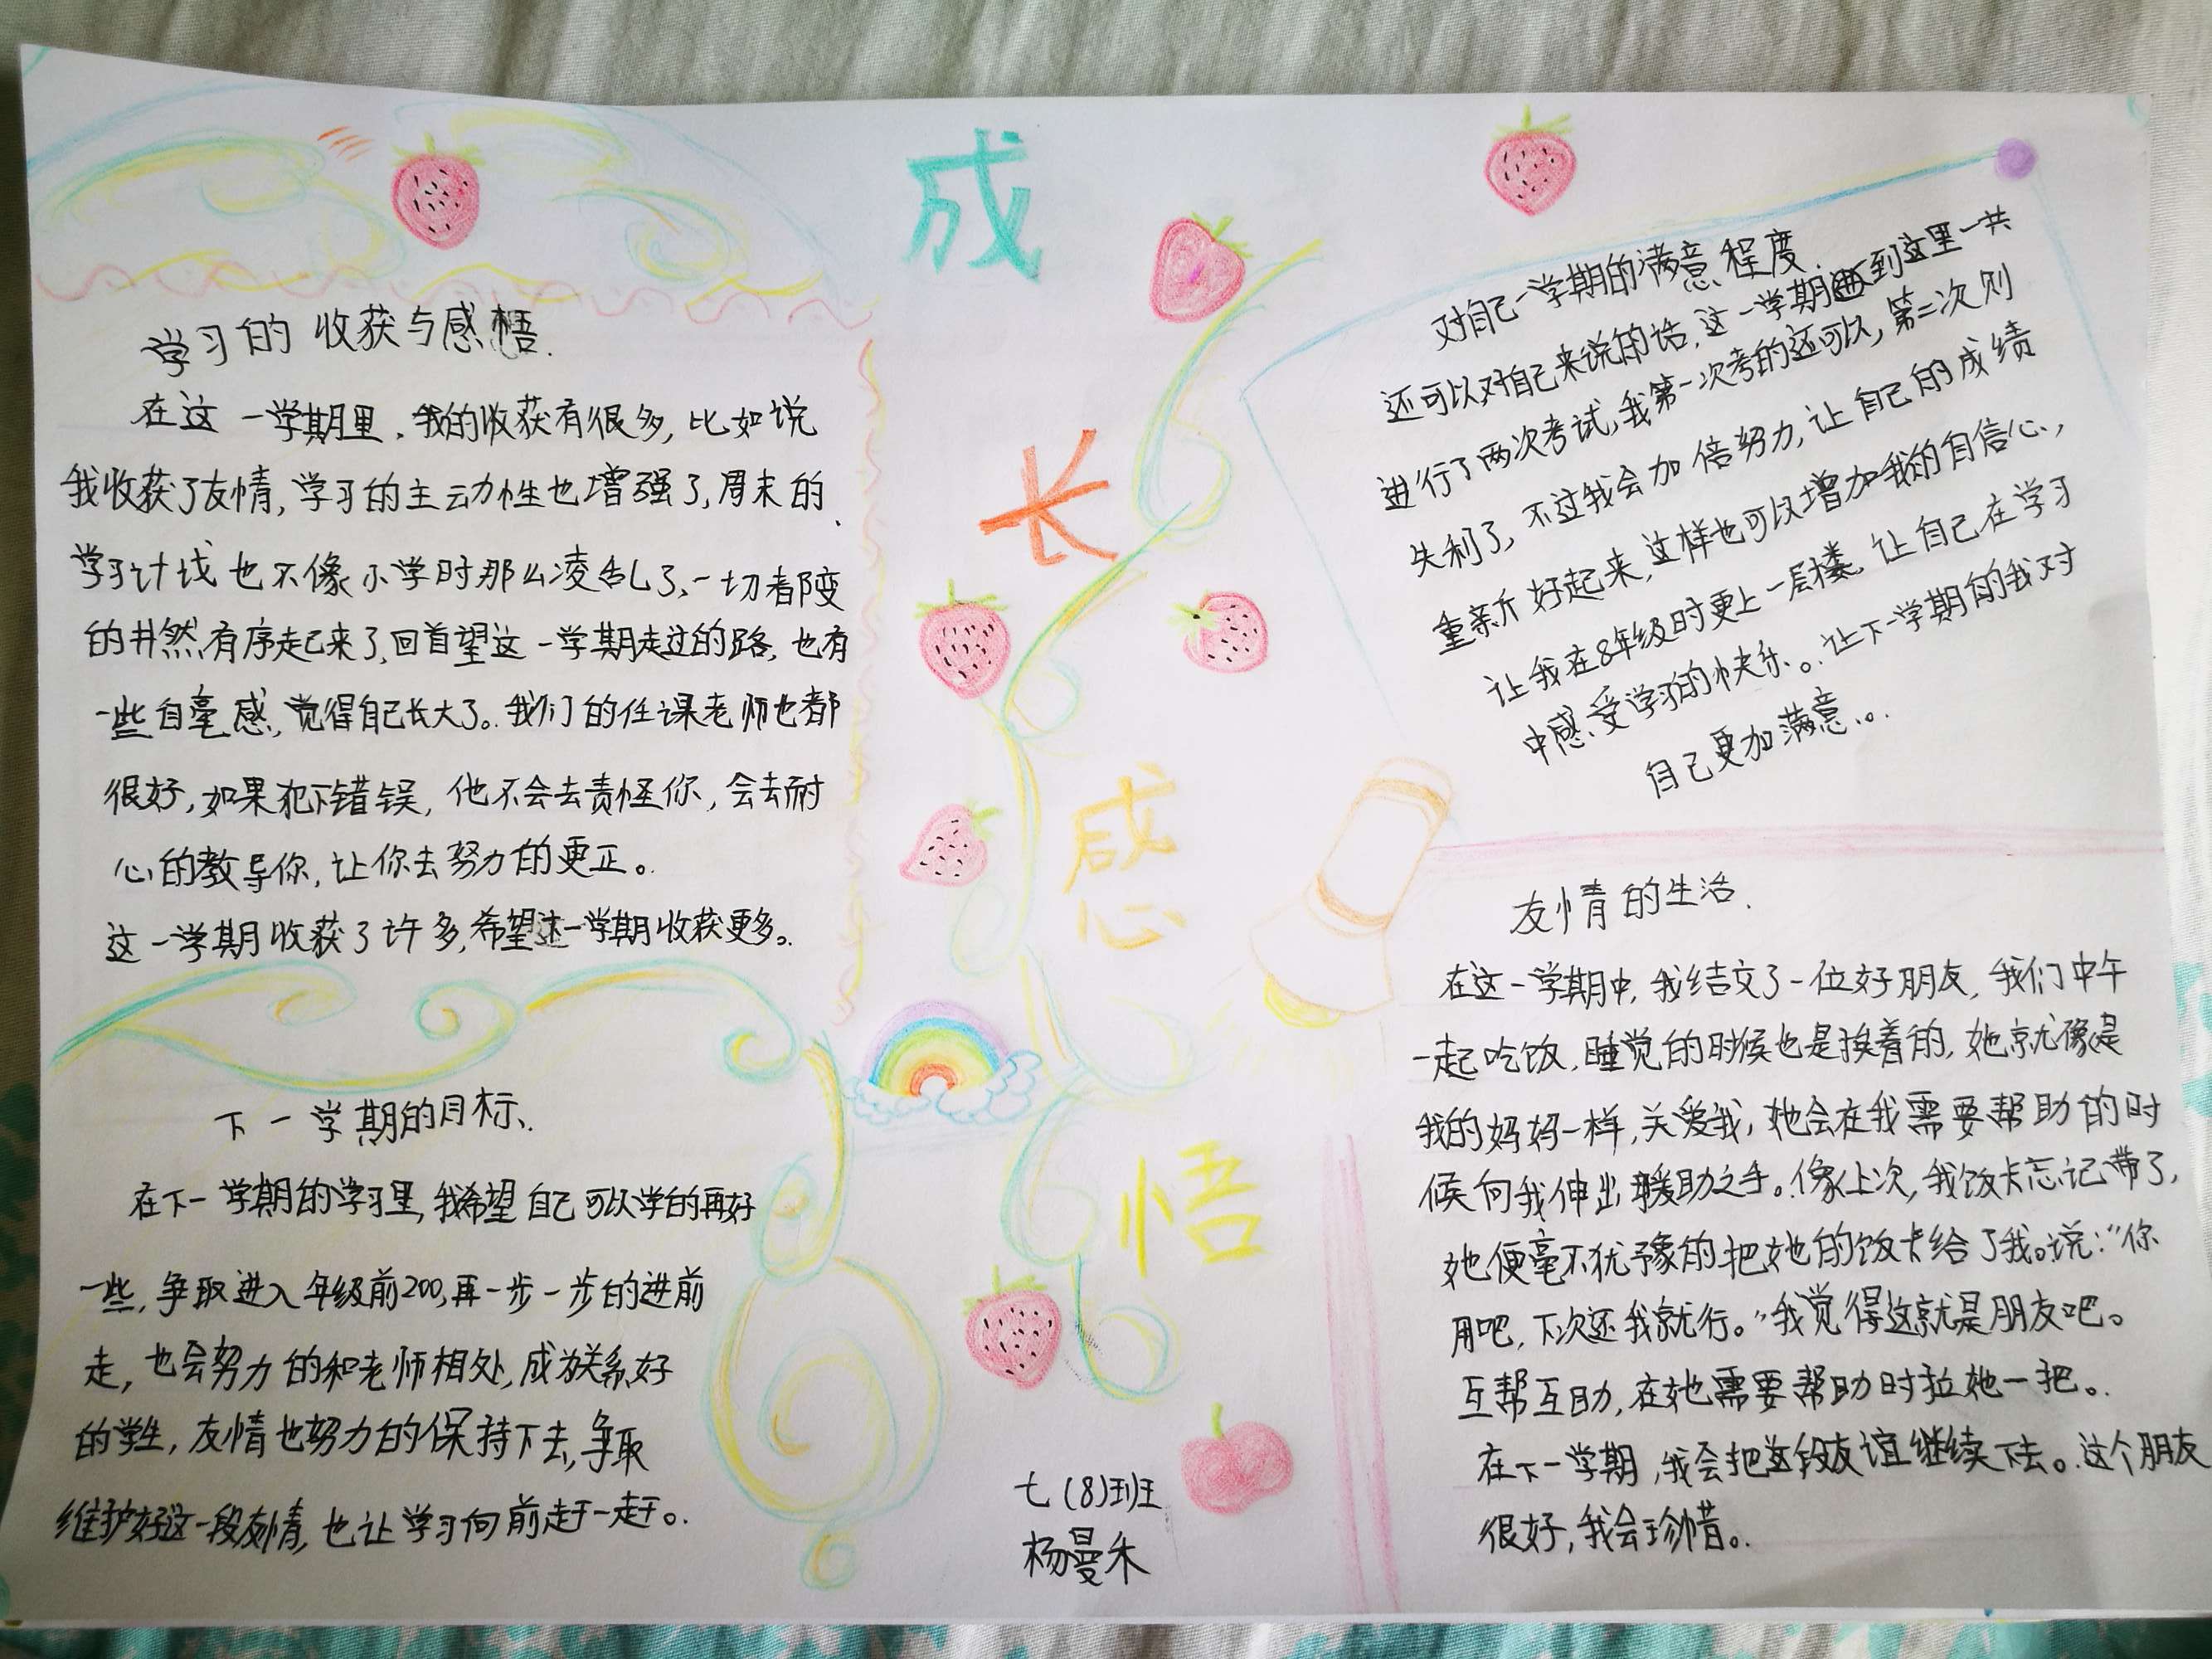 成
长
感
悟
学习的收获与感悟.
在这一学期里,我的收获有很多,比如说
我收获了友情,学习的主动性也增强了,周末的
学习计划也不像小学时那么凌乱了、一切都变
的井然有序起来了,回首望这一学期走过的路,也有
一些自豪感,觉得自己长大了。我们的任课老师也都
很好,如果犯下错误,他不会去责怪你,会去耐
心的教导你,让你去努力的更正。
这一学期收获了许多,希望这一学期收获更多。
下一学期的目标、
在下一学期的学习里,我希望自己可以学的再好
一些,争取进入年级前200,再一步一步的进前
走,也会努力的和老师相处,成为关系好
的学生,友情也努力的保持下去,争取
维护好这一段友情,也让学习向前赶一赶。
对自己一学期的满意程度.
还可以对自己来说的话,这一学期到这里一共
进行了两次考试,我第一次考的还可以,第二次则
失利了,不过我会加倍努力,让自己的成绩
重新好起来,这样也可以增加我的自信心,
让我在8年级时更上一层楼,让自己在学习
中感受学习的快乐。让下一学期的我对
自己更加满意。
友情的生活.
在这一学期中,我结交了一位好朋友,我们中午
一起吃饭,睡觉的时候也是挨着的,她就像是
我的妈妈一样,关爱我,她会在我需要帮助的时
候向我伸出援助之手。像上次,我饭卡忘记带了,
她便毫不犹豫的把她的饭卡给了我。说:“你
用吧,下次还我就行。”我觉得这就是朋友吧。
互帮互助,在她需要帮助时拉她一把。
在下一学期,我会把这段友谊继续下去。这个朋友
很好,我会珍惜。
七(8)班
杨曼禾